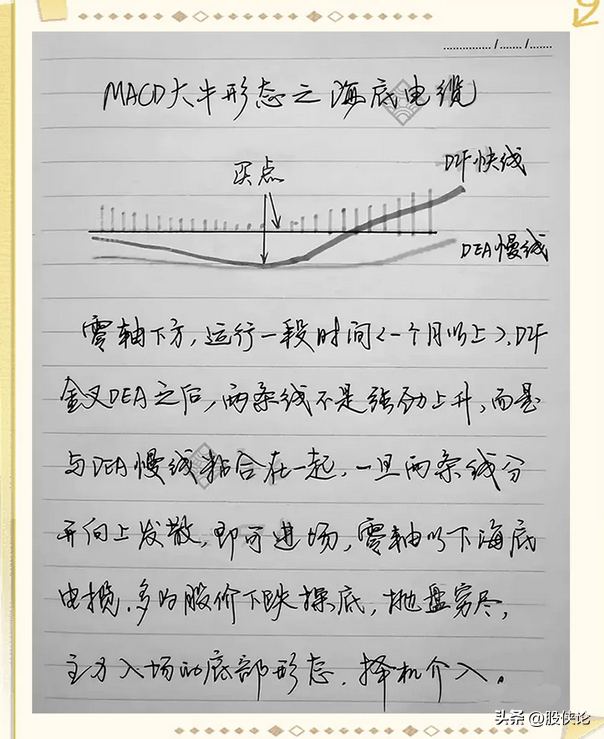 ............... / ....... / .......
MACD大牛形态之海底电缆
买点
DIF快线
DEA慢线
零轴下方，运行一段时间<一个月以上>，DIF
金叉DEA之后，两条线不是强劲上升，而是
与DEA慢线粘合在一起，一旦两条线分
开向上发散，即可进场，零轴以下海底
电揽，多为股价下跌探底，抛盘穷尽，
主力入场的底部形态，择机介入。
头条 @股侠论